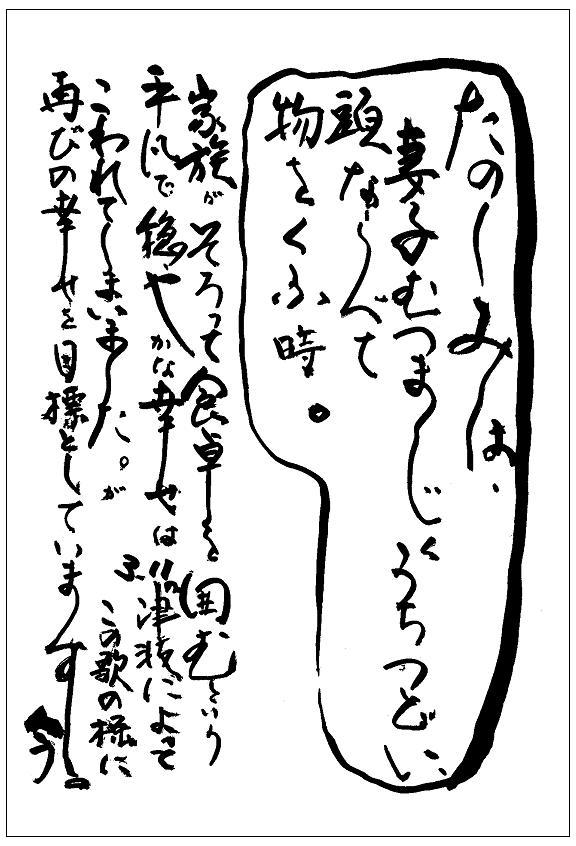 たのしみは、
妻子むつまじく うちつどい、
頭ならべて
物をくふ時。
家族がそろって食卓を囲むという
平凡で穏やかな幸せは 津波によって
こわれてしまいました。が この歌の様に
再びの幸せを目標としています